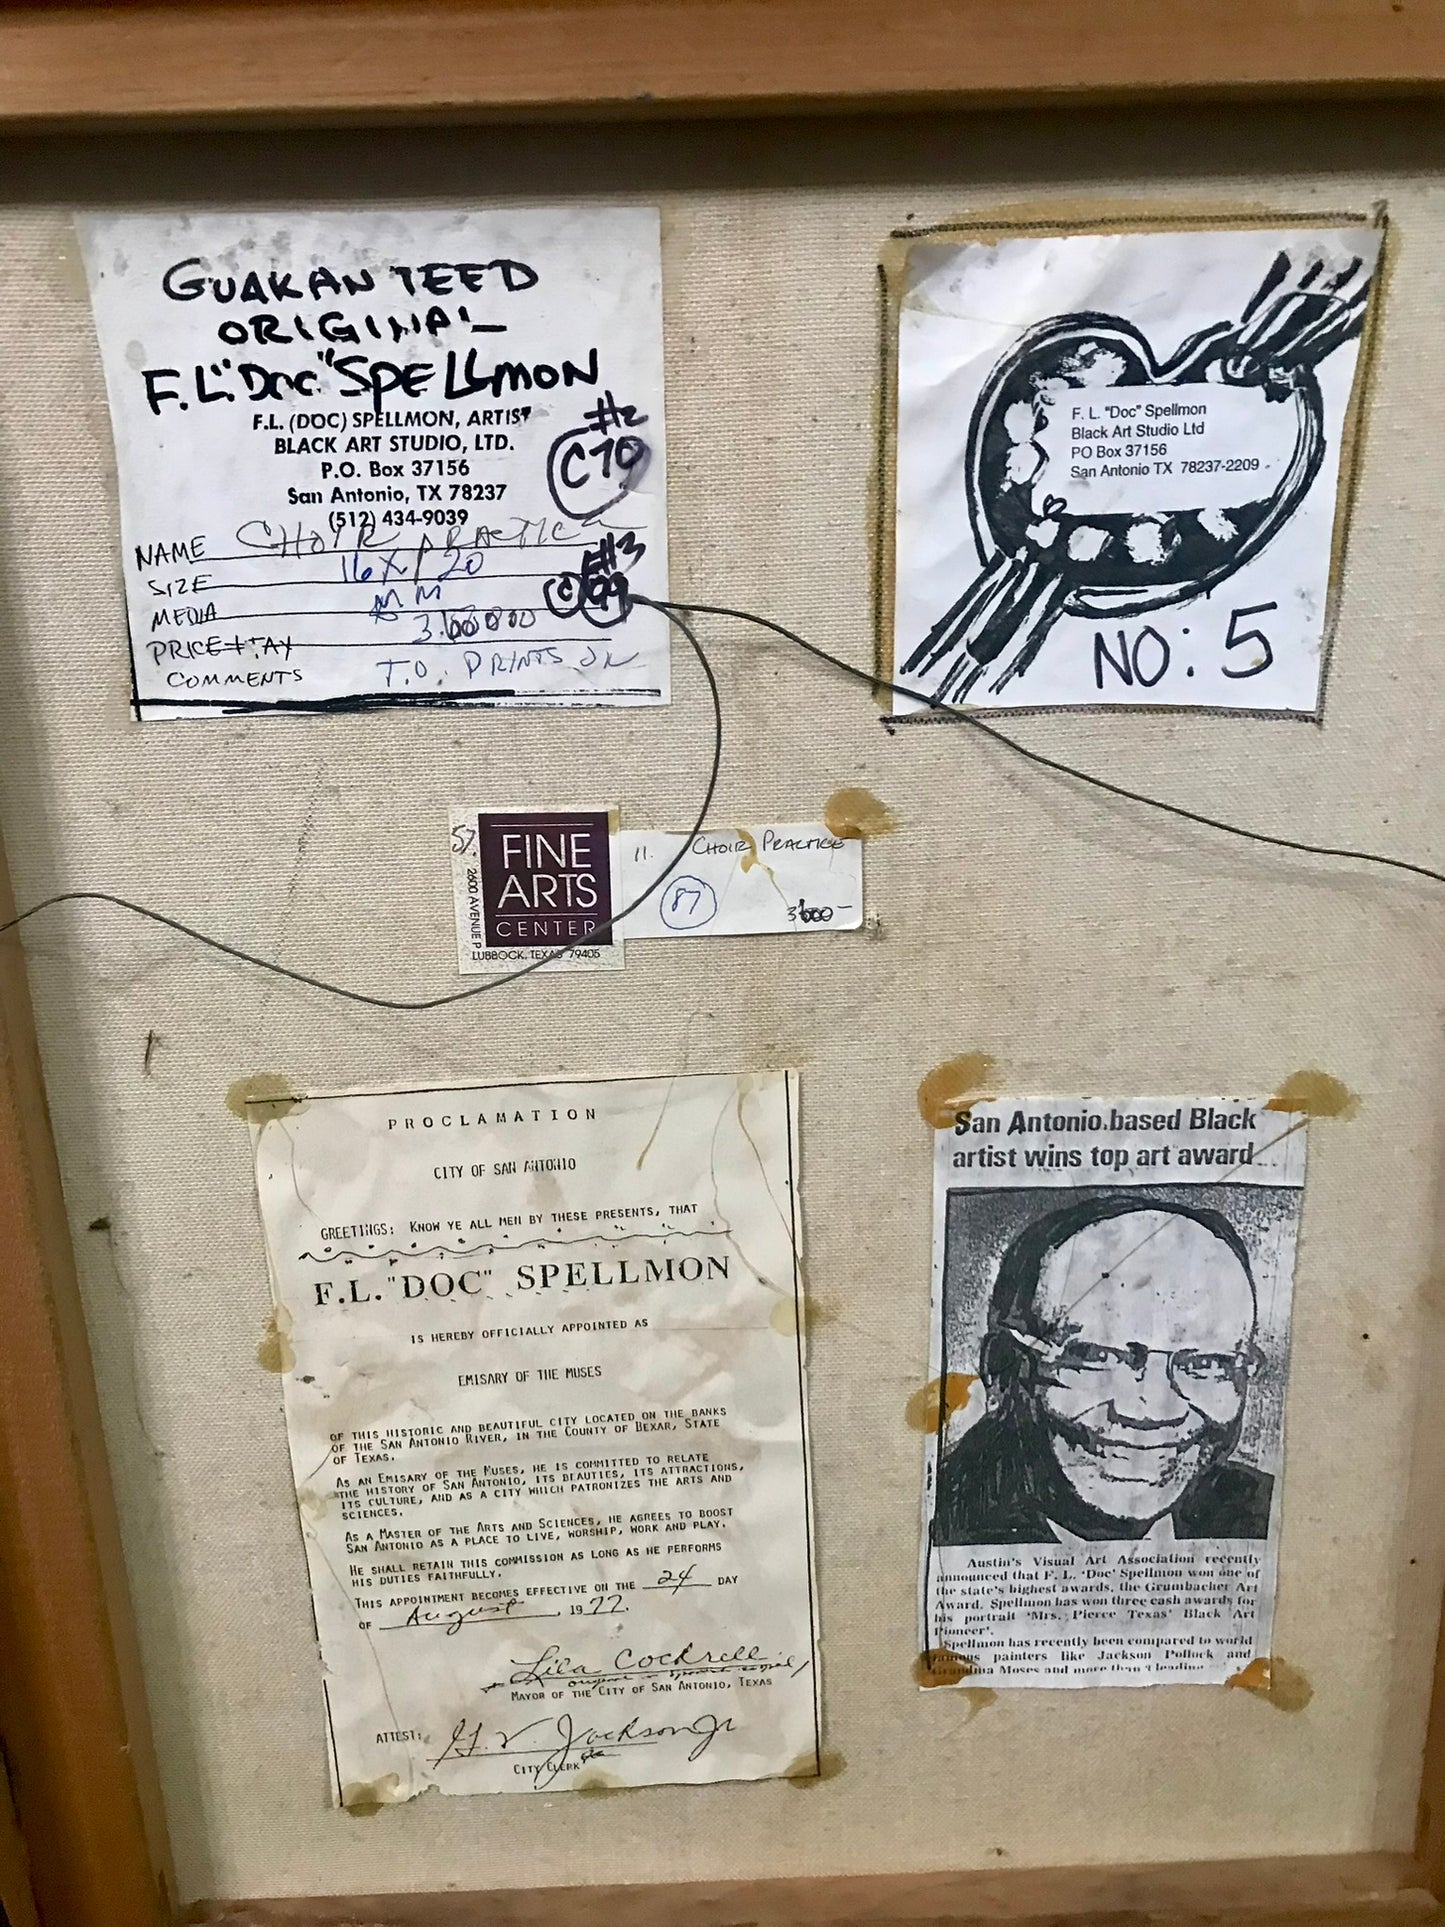 GUARANTEED
ORIGINAL
F.L. "Doc" SpELLMON
F.L. (DOC) SPELLMON, ARTIST
BLACK ART STUDIO, LTD.
P.O. Box 37156
San Antonio, TX 78237
(512) 434-9039
#2
C70
NAME CHOIR PRACTICE
SIZE 16 X 20
MEDIA MM
#3
C 99
PRICE + TAX
COMMENTS T.O. PRINTS ON
F. L. "Doc" Spellmon
Black Art Studio Ltd
PO Box 37156
San Antonio TX 78237-2209
NO: 5
57.
FINE
ARTS
CENTER
2600 AVENUE P
LUBBOCK, TEXAS 79405
11. CHOIR PRACTICE
87
PROCLAMATION
CITY OF SAN ANTONIO
GREETINGS: KNOW YE ALL MEN BY THESE PRESENTS, THAT
F.L. "DOC" SPELLMON
IS HEREBY OFFICIALLY APPOINTED AS
EMISARY OF THE MUSES
OF THIS HISTORIC AND BEAUTIFUL CITY LOCATED ON THE BANKS
OF THE SAN ANTONIO RIVER, IN THE COUNTY OF BEXAR, STATE
OF TEXAS.
AS AN EMISARY OF THE MUSES, HE IS COMMITTED TO RELATE
THE HISTORY OF SAN ANTONIO, ITS BEAUTIES, ITS ATTRACTIONS,
ITS CULTURE, AND AS A CITY WHICH PATRONIZES THE ARTS AND
SCIENCES.
AS A MASTER OF THE ARTS AND SCIENCES, HE AGREES TO BOOST
SAN ANTONIO AS A PLACE TO LIVE, WORSHIP, WORK AND PLAY.
HE SHALL RETAIN THIS COMMISSION AS LONG AS HE PERFORMS
HIS DUTIES FAITHFULLY.
THIS APPOINTMENT BECOMES EFFECTIVE ON THE 24 DAY
OF August, 1977.
Lila Cockrell
MAYOR OF THE CITY OF SAN ANTONIO, TEXAS
ATTEST: G. V. Jackson Jr
CITY CLERK
San Antonio.based Black
artist wins top art award
Austin's Visual Art Association recently
announced that F. L. 'Doc' Spellmon won one of
the state's highest awards, the Grumbacher Art
Award. Spellmon has won three cash awards for
his portrait 'Mrs. Pierce Texas' Black Art
Pioneer'.
Spellmon has recently been compared to world
famous painters like Jackson Pollock and
Grandma Moses and more than